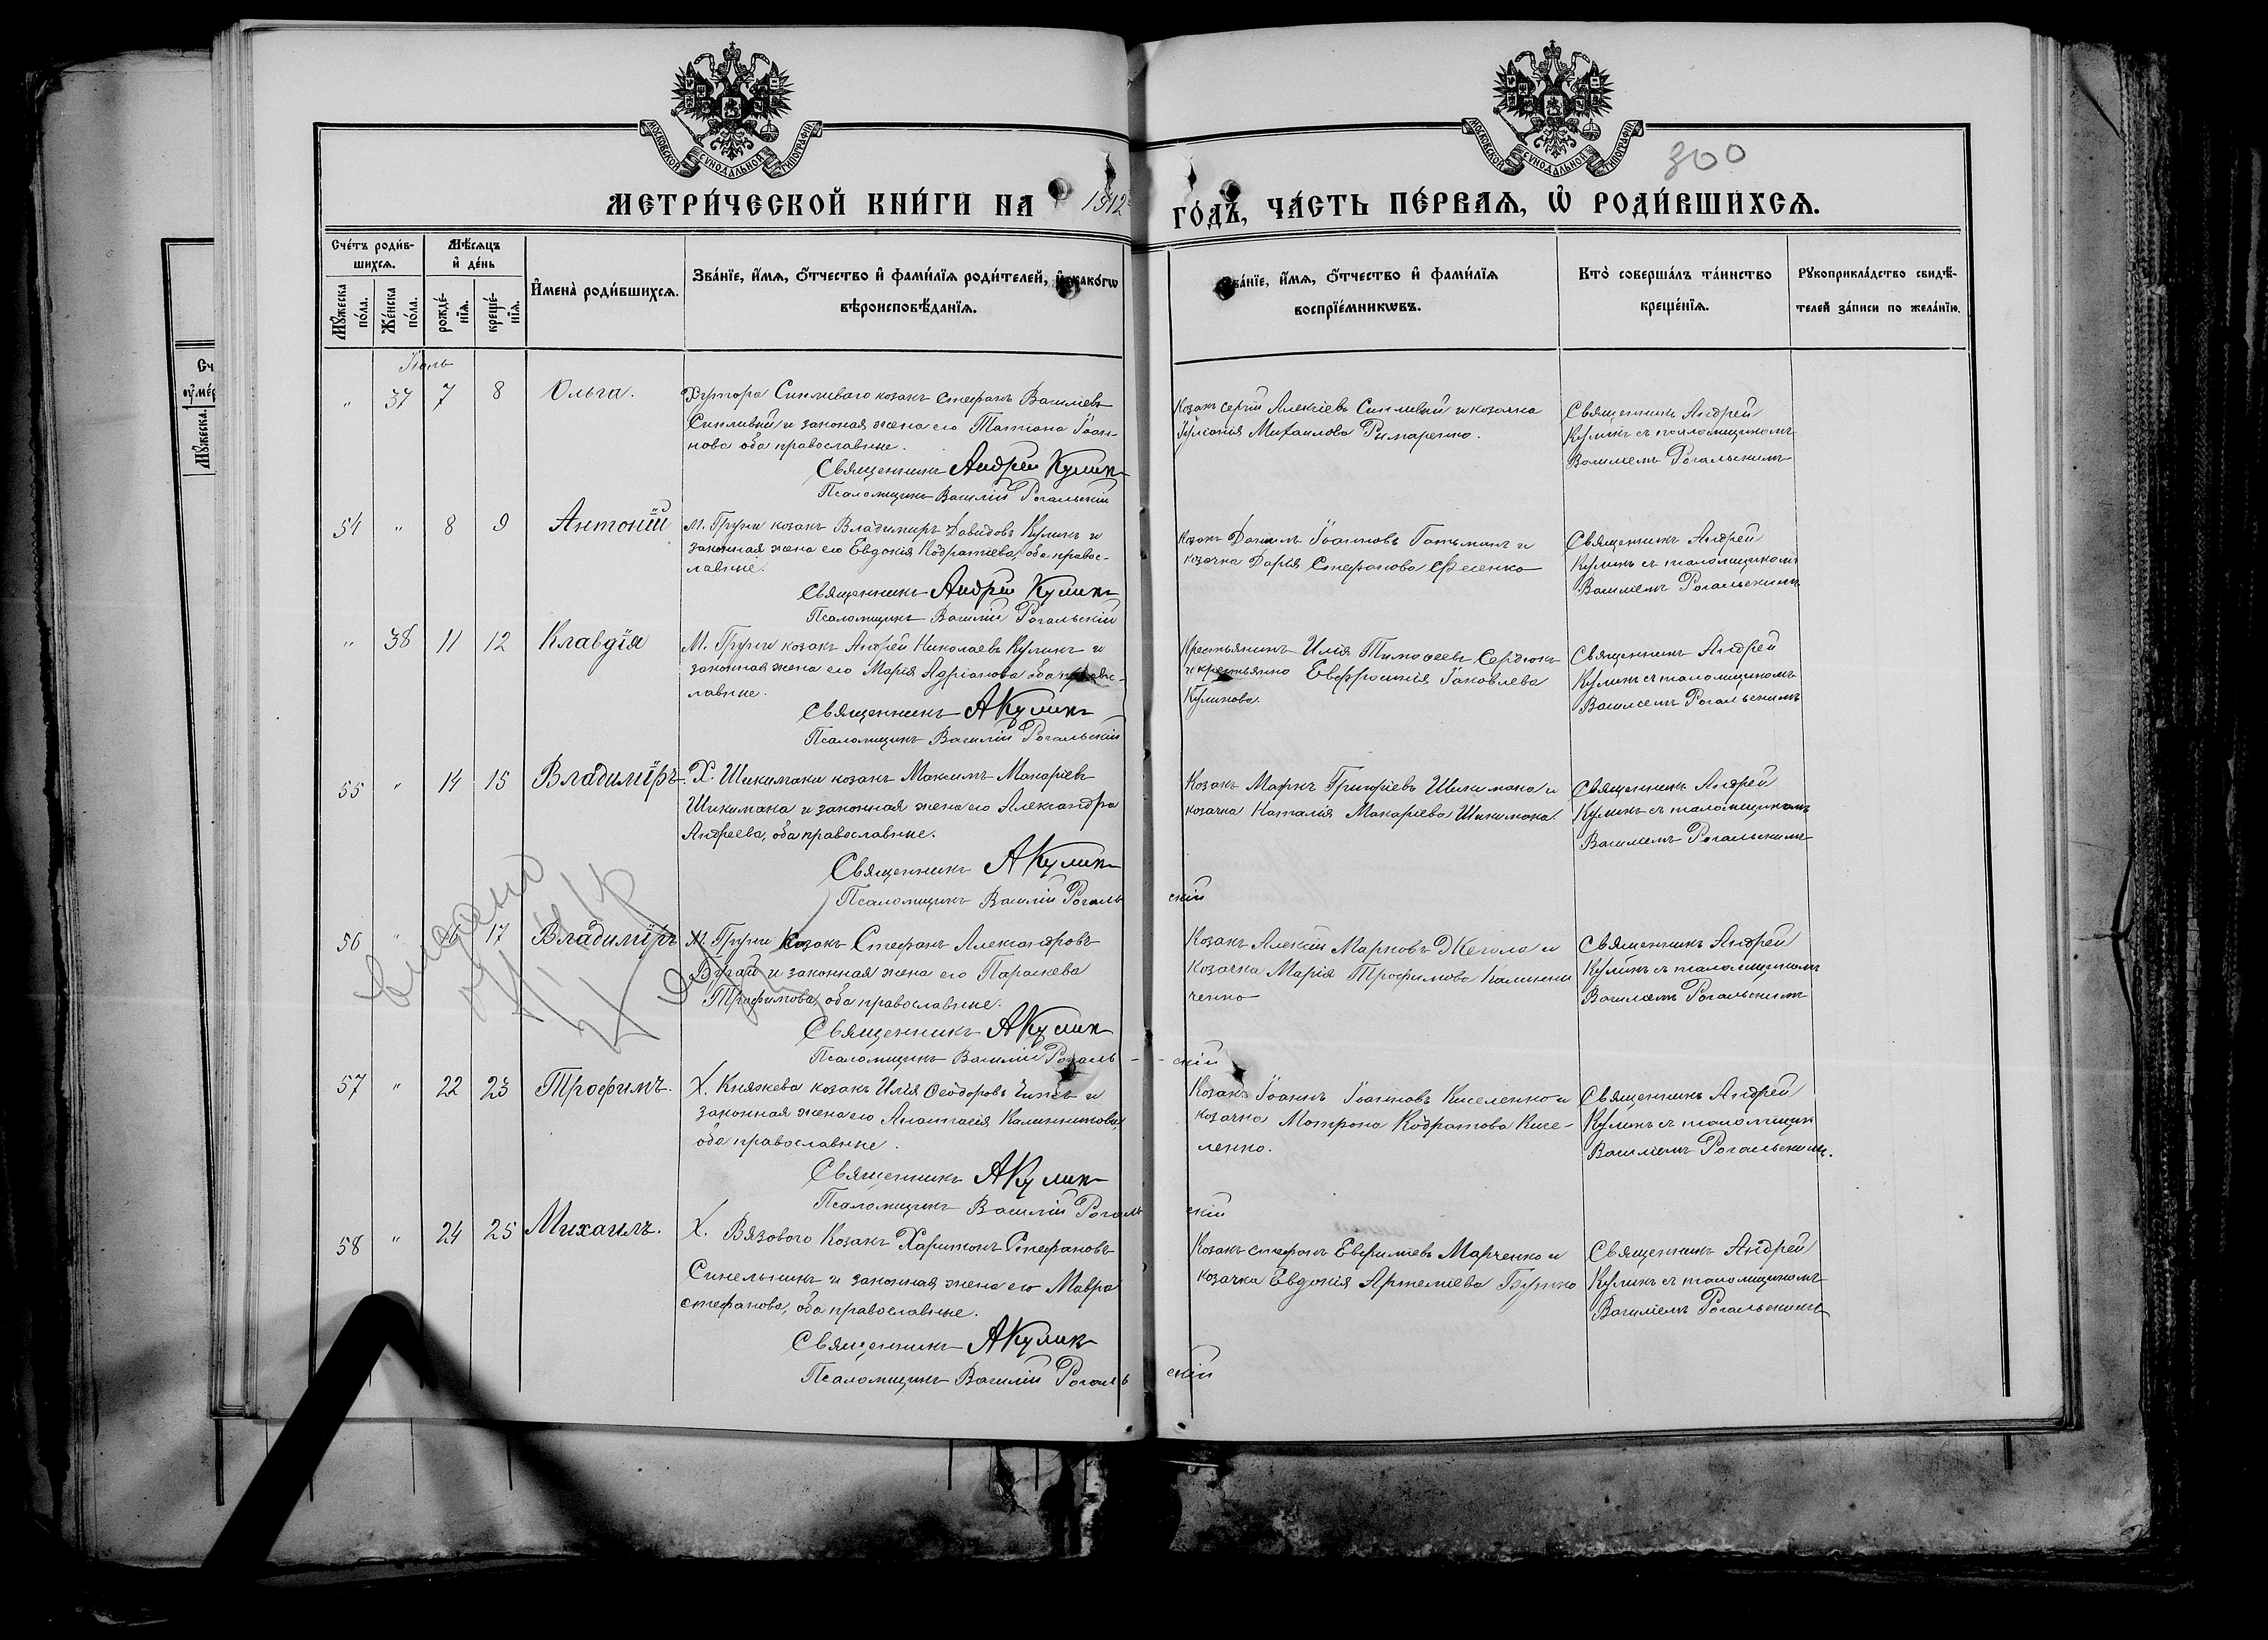 МОСКОВСКОЙ СѴНОДАЛЬНОЙ ТИПОГРАФІИ
МОСКОВСКОЙ СѴНОДАЛЬНОЙ ТИПОГРАФІИ
300
МЕТРИ́ЧЕСКОЙ КНИ́ГИ НА 1912
ГО́ДЪ, ЧА́СТЬ ПЕ́РВАЯ, Ѡ҆ РОДИ́ВШИХСЯ.
Сче́тъ роди́в-
шихсѧ.
Мꙋ́жеска по́ла.
Же́нска по́ла.
Мѣ́сѧцъ
и҆ де́нь
рожде́-
нїѧ.
креще́-
нїѧ.
И҆мена̀ роди́вшихсѧ.
Зва́нїе, и҆́мѧ, ѻ҆́тчество и҆ фами́лїѧ роди́телей, и҆ како́гѡ
вѣроисповѣ́данїѧ.
Зва́нїе, и҆́мѧ, ѻ҆́тчество и҆ фами́лїѧ
воспрїе́мникѡвъ.
Кто̀ соверша́лъ та́инство
креще́нїѧ.
Рꙋкоприкла́дство свидѣ́-
телей за́писи по жела́нїю.
Іюль
" 37 7 8 Ольга.
Хутора Сипливаго козакъ Стефанъ Василіевъ
Сипливый и законая жена его Татіана Іоан-
нова оба православные.
Священникъ Андрей Куликъ
Псаломщикъ Василій Рогальскій
Козакъ Сергій Алексіевъ Сипливый и козачка
Михаилова Римаренко.
Священникъ Андрей
Куликъ съ псаломщикомъ
Василіемъ Рогальскимъ
54 " 8 9 Антоній
М. Груни козакъ Владиміръ Давидовъ Куликъ и
законная жена его Евдокія Кодратіева, оба правос-
лавные.
Священникъ Андрей Куликъ
Псаломщикъ Василій Рогальскій
Козакъ Даниилъ Іоанновъ Гатьман и
козачка Дарія Стефанова Фесенко
Священникъ Андрей
Куликъ съ псаломщикомъ
Василіемъ Рогальскимъ
" 38 11 12 Клавдія
М. Груни козакъ Андрей Николаевъ Куликъ и
законная жена его Марія Адріанова оба правос-
лавные.
Священникъ А Куликъ
Псаломщикъ Василій Рогальскій
Крестьянинъ Илія Тимофеевъ Сердюкъ
и крестьянка Евфросинія Іаковлева
Куликова.
Священникъ Андрей
Куликъ съ псаломщикомъ
Василіемъ Рогальскимъ
55 " 14 15 Владиміръ
Х. Шикимаки козакъ Максимъ Макаріевъ
Шикимака и законная жена его Александра
Андреева, оба православные.
Священникъ А Куликъ
Псаломщикъ Василій Рогаль
скій
Козакъ Маркъ Григоріевъ Шикимака и
козачка Наталія Макаріева Шикимака.
Священникъ Андрей
Куликъ съ псаломщикомъ
Василіемъ Рогальскимъ
56 " 16 17 Владиміръ
М. Груни Козакъ Стефанъ Александровъ
Бугай и законная жена его Параскева
Трофимова, оба православные.
Священникъ А Куликъ
Псаломщикъ Василій Рогаль -
- скій
Козакъ Алексій Марковъ Жегола и
Козачка Марія Трофимова Калини
ченко
Священникъ Андрей
Куликъ съ псаломщикомъ
Василіемъ Рогальскимъ
57 " 22 23 Трофимъ.
Х. Княжева козакъ Илія Феодоровъ и
законная жена его Анастасія Калинникова,
оба православные.
Священникъ А Куликъ
Псаломщикъ Василій Рогаль
скій
Козакъ Іоаннъ Іоанновъ Киселенко и
козачка Мотрона Кодратова Кисе-
ленко.
Священникъ Андрей
Куликъ съ псаломщик
Василіемъ Рогальскимъ.
58 " 24 25 Михаилъ.
Х. Вязового Козакъ Харитонъ Стефановъ
Синельникъ и законная жена его Мавра
Стефанова, оба православные.
Священникъ А Куликъ
Псаломщикъ Василій Рогаль
скій
Козакъ Стефанъ Марченко и
козачка Евдокія Артеміева Бутко
Священникъ Андрей
Куликъ съ псаломщикомъ
Василіемъ Рогальскимъ